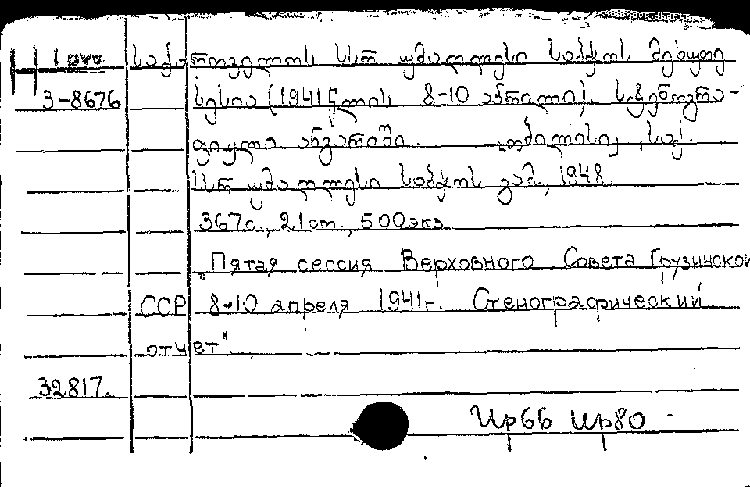 საქართველოს სსრ უმაღლესი საბჭოს მეხუთე
3-8676 სესია (1941 წლის 8-10 აპრილი). სტენოგრა-
ფიული ანგარიში. თბილისი, საქ.
სსრ უმაღლესი საბჭოს გამ., 1948.
367с., 21 см., 500 экз.
"Пятая сессия Верховного Совета Грузинской
ССР 8-10 апреля 1941г. Стенографический
отчет"
32817.